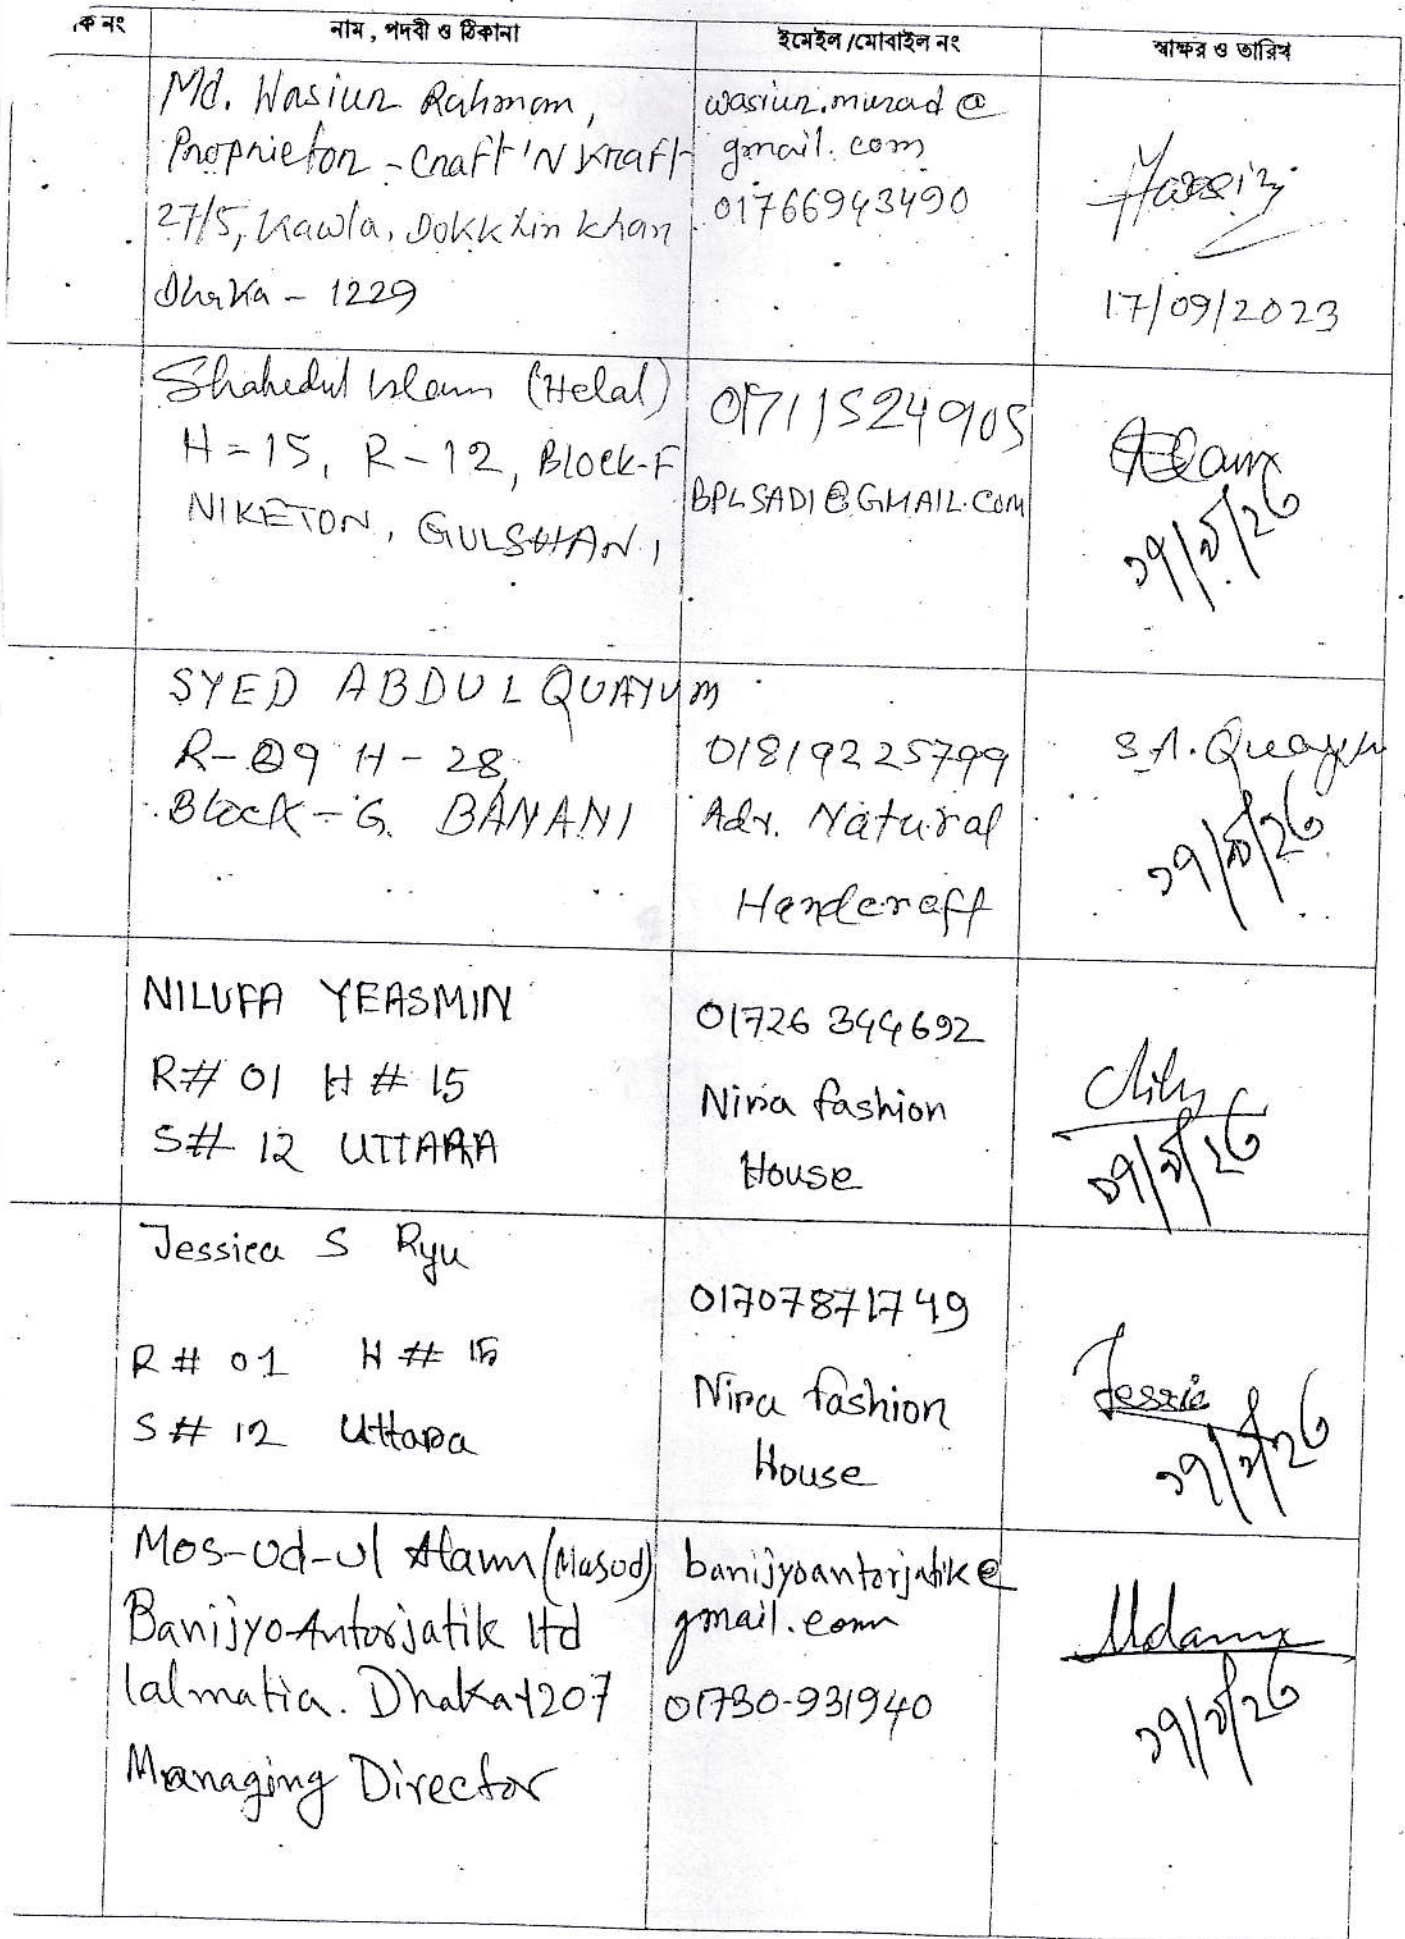 ক নং
নাম, পদবী ও ঠিকানা
ইমেইল/মোবাইল নং
স্বাক্ষর ও তারিখ
Md. Wasiur Rahman,
Proprietor - Craft 'N Kraft
27/5, Kawla, Dokkhin khan
Dhaka - 1229
wasiur.murad@
gmail.com
01766943490
17/09/2023
Shahedul Islam (Helal)
H=15, R-12, Block-F
NIKETON, GULSHAN,
01711524905
BPLSADI@GMAIL.COM
১৭/৯/২৩
SYED ABDUL QUAYUM
R-09 H-28,
Block-G. BANANI
01819225799
Adv. Natural
Handcraft
S.A. Quayum
১৭/৯/২৩
NILUFA YEASMIN
R# 01 H# 15
S# 12 UTTARA
01726 344692
Nira fashion
House
১৭/৯/২৩
Jessica S Ryu
R# 01 H# 15
S# 12 Uttara
01707871749
Nira fashion
House
Jessie
১৭/৯/২৩
Mos-ud-ul Alam (Masud)
Banijyo Antorjatik ltd
lalmatia. Dhaka-1207
Managing Director
banijyoantorjatik@
gmail.com
01730-931940
১৭/৯/২৩